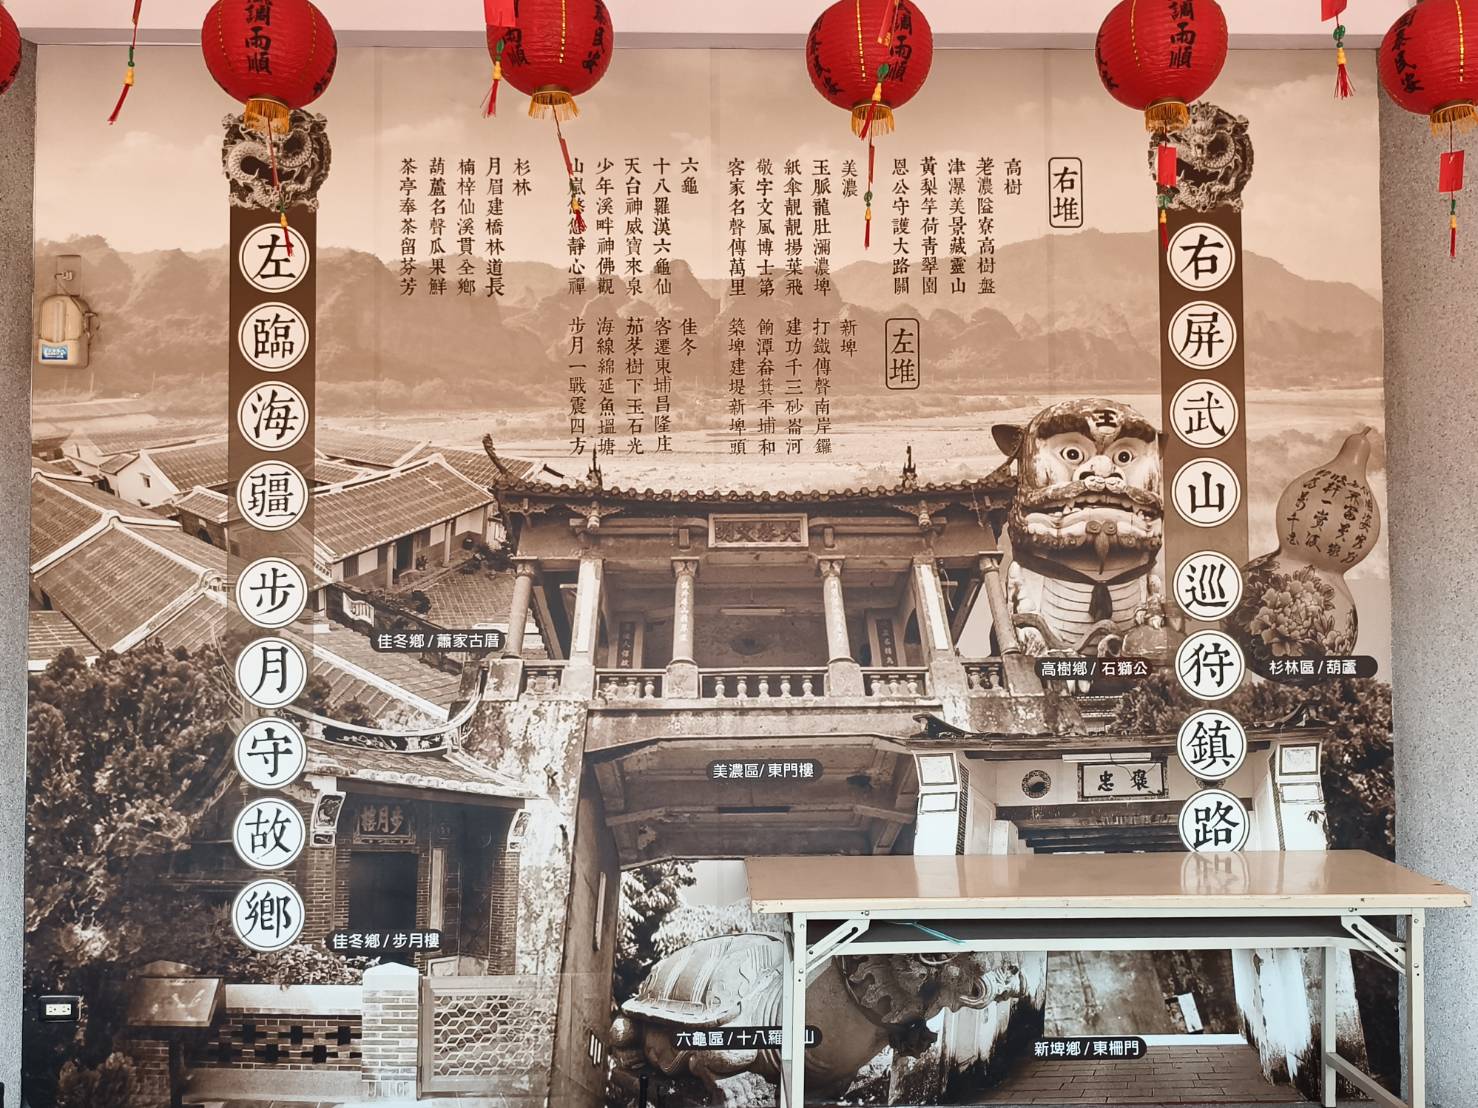 右堆
高樹
老濃隘寮高樹盤
津瀑美景藏靈山
黃梨芋荷青翠園
恩公守護大路關
美濃
玉脈龍肚瀰濃埤
紙傘靚靚揚葉飛
敬字文風博士第
客家名聲傳萬里
六龜
十八羅漢六龜仙
天台神威寶來泉
少年溪畔神佛觀
山嵐悠悠靜心禪
杉林
月眉建橋林道長
楠梓仙溪貫全鄉
葫蘆名聲瓜果鮮
茶亭奉茶留芬芳
左堆
新埤
打鐵傳聲南岸鑼
建功千三砂崙河
餉潭畚箕平埔和
築埤建堤新埤頭
佳冬
客遷東埔昌隆庄
茄苳樹下玉石光
海線綿延魚塭塘
步月一戰震四方
右屏武山巡狩鎮路
左臨海疆步月守故鄉
佳冬鄉/蕭家古厝
高樹鄉/石獅公
杉林區/葫蘆
美濃區/東門樓
佳冬鄉/步月樓
六龜區/十八羅
山
新埤鄉/東柵門
步月樓
褒忠
調雨順
調雨順
調雨順